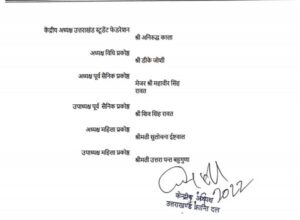 केंद्रीय अध्यक्ष उत्तराखंड स्टूडेंट फेडरेशन
श्री अनिरुद्ध काला
अध्यक्ष विधि प्रकोष्ठ
श्री डीके जोशी
अध्यक्ष पूर्व सैनिक प्रकोष्ठ
मेजर श्री महावीर सिंह
रावत
उपाध्यक्ष पूर्व सैनिक प्रकोष्ठ
श्री शिव सिंह रावत
अध्यक्ष महिला प्रकोष्ठ
श्रीमती सुलोचना ईष्टवाल
उपाध्यक्ष महिला प्रकोष्ठ
श्रीमती उत्तरा पन्त बहुगुणा
2022
केन्द्रीय अध्यक्ष
उत्तराखण्ड क्रान्ति दल